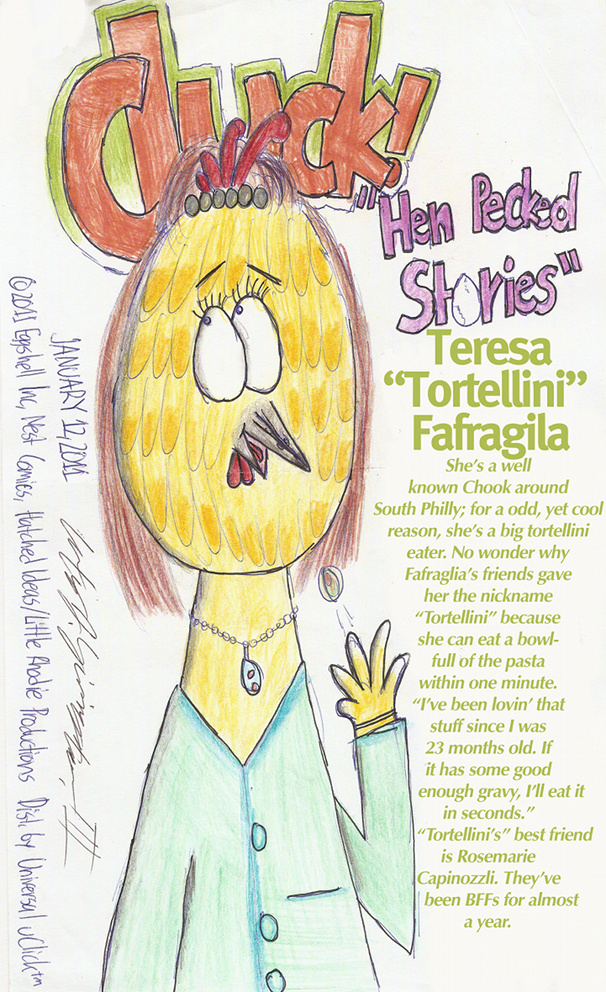 Cluck!
"Hen Pecked
Stories"
Teresa
“Tortellini”
Fafragila
She's a well
known Chook around
South Philly; for a odd, yet cool
reason, she's a big tortellini
eater. No wonder why
Fafraglia's friends gave
her the nickname
“Tortellini” because
she can eat a bowl-
full of the pasta
within one minute.
“I've been lovin' that
stuff since I was
23 months old. If
it has some good
enough gravy, I'll eat it
in seconds.”
“Tortellini's” best friend
is Rosemarie
Capinozzli. They've
been BFFs for almost
a year.
JANUARY 12, 2011
III
©2011 Eggshell Inc, Nest Comics, Hatched Ideas/Little Rhodie Productions Dist. by Universal uClick™